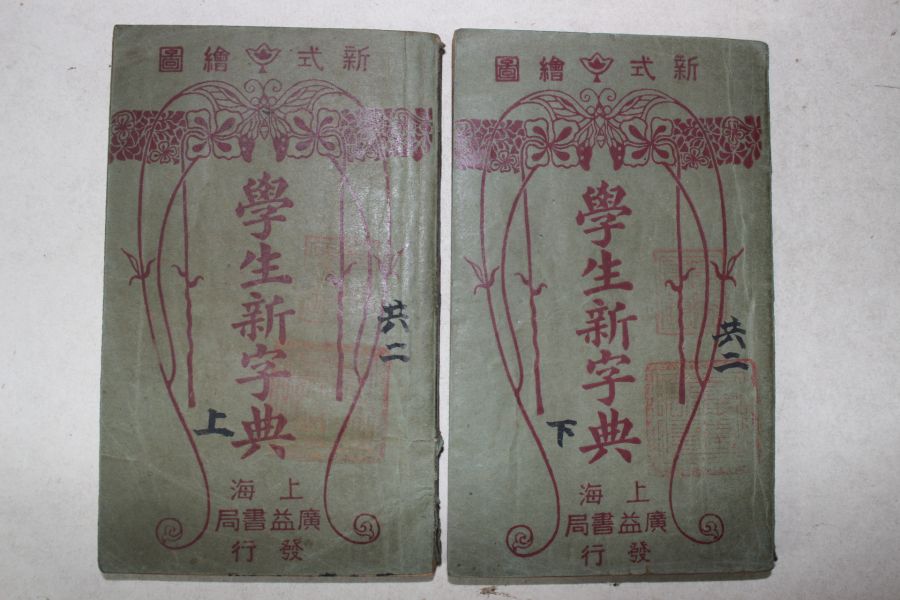 新式繪圖
學生新字典
上
共二
上海
廣益書局
發行
新式繪圖
學生新字典
下
共二
上海
廣益書局
發行